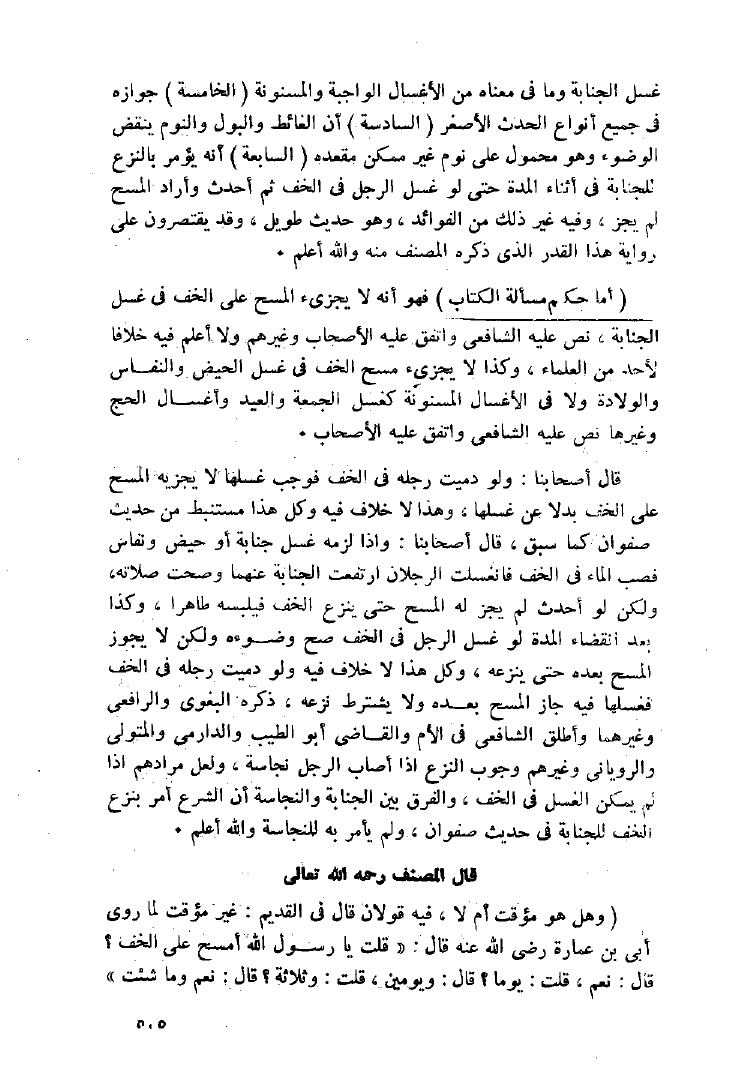 غسل الجنابة وما فى معناه من الأغسال الواجبة والمسنونة ( الخامسة ) جوازه
فى جميع أنواع الحدث الأصغر ( السادسة ) أن الغائط والبول والنوم ينقض
الوضوء وهو محمول على نوم غير ممكن مقعده ( السابعة ) أنه يؤمر بالنزع
للجنابة فى أثناء المدة حتى لو غسل الرجل فى الخف ثم أحدث وأراد المسح
لم يجز ، وفيه غير ذلك من الفوائد ، وهو حديث طويل ، وقد يقتصرون على
رواية هذا القدر الذى ذكره المصنف منه والله أعلم ٠
( أما حكم مسألة الكتاب ) فهو أنه لا يجزىء المسح على الخف فى غسل
الجنابة ، نص عليه الشافعى واتفق عليه الأصحاب وغيرهم ولا أعلم فيه خلافا
لأحد من العلماء ، وكذا لا يجزىء مسح الخف فى غسل الحيض والنفـاس
والولادة ولا فى الأغسال المسنونة كغسل الجمعة والعيد وأغســال الحج
وغيرها نص عليه الشافعى واتفق عليه الأصحاب ٠
قال أصحابنا : ولو دميت رجله فى الخف فوجب غسلها لا يجزيه المسح
على الخف بدلا عن غسلها ، وهذا لا خلاف فيه وكل هذا مستنبط من حديث
صفوان كما سبق ، قال أصحابنا : واذا لزمه غسل جنابة أو حيض ونفاس
فصب الماء فى الخف فانغسلت الرجلان ارتفعت الجنابة عنهما وصحت صلاته،
ولكن لو أحدث لم يجز له المسح حتى ينزع الخف فيلبسه طاهرا ، وكذا
بعد انقضاء المدة لو غسل الرجل فى الخف صح وضــوءه ولكن لا يجوز
المسح بعده حتى ينزعه ، وكل هذا لا خلاف فيه ولو دميت رجله فى الخف
فغسلها فيه جاز المسح بعــده ولا يشترط نزعه ، ذكره البغوى والرافعى
وغيرهما وأطلق الشافعى فى الأم والقــاضى أبو الطيب والدارمى والمتولى
والرويانى وغيرهم وجوب النزع اذا أصاب الرجل نجاسة ، ولعل مرادهم اذا
لم يمكن الغسل فى الخف ، والفرق بين الجنابة والنجاسة أن الشرع أمر بنزع
الخف للجنابة فى حديث صفوان ، ولم يأمر به للنجاسة والله أعلم ٠
قال المصنف رحمه الله تعالى
( وهل هو مؤقت أم لا ، فيه قولان قال فى القديم : غير مؤقت لما روى
أبى بن عمارة رضى الله عنه قال : « قلت يا رســول الله أمسح على الخف ؟
قال : نعم ، قلت : يوما ؟ قال : ويومين ، قلت : وثلاثة ؟ قال : نعم وما شئت »
٥٠٥